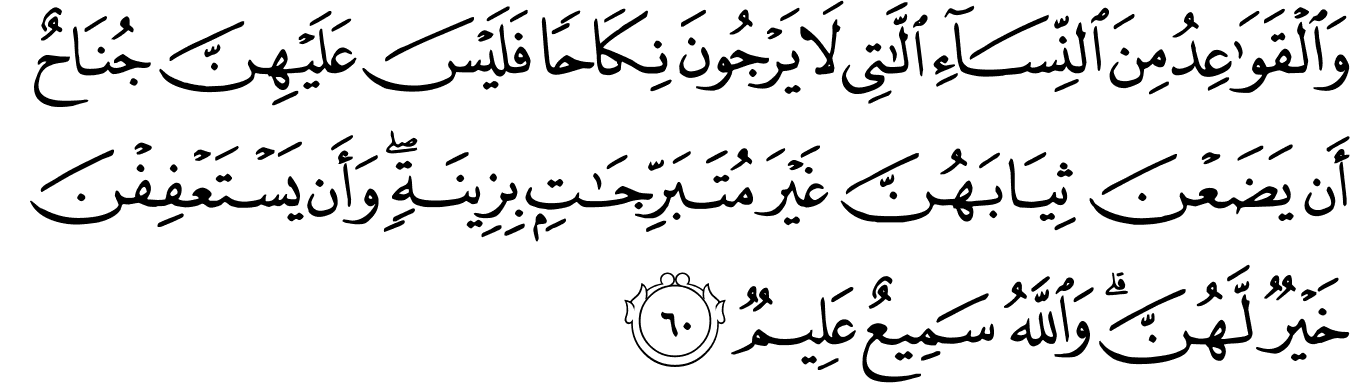 وَٱلْقَوَٰعِدُ مِنَ ٱلنِّسَآءِ ٱلَّـٰتِى لَا يَرْجُونَ نِكَاحًا فَلَيْسَ عَلَيْهِنَّ جُنَاحٌ
أَن يَضَعْنَ ثِيَابَهُنَّ غَيْرَ مُتَبَرِّجَـٰتٍۭ بِزِينَةٍ ۖ وَأَن يَسْتَعْفِفْنَ
خَيْرٌ لَّهُنَّ ۗ وَٱللَّهُ سَمِيعٌ عَلِيمٌ ٦٠